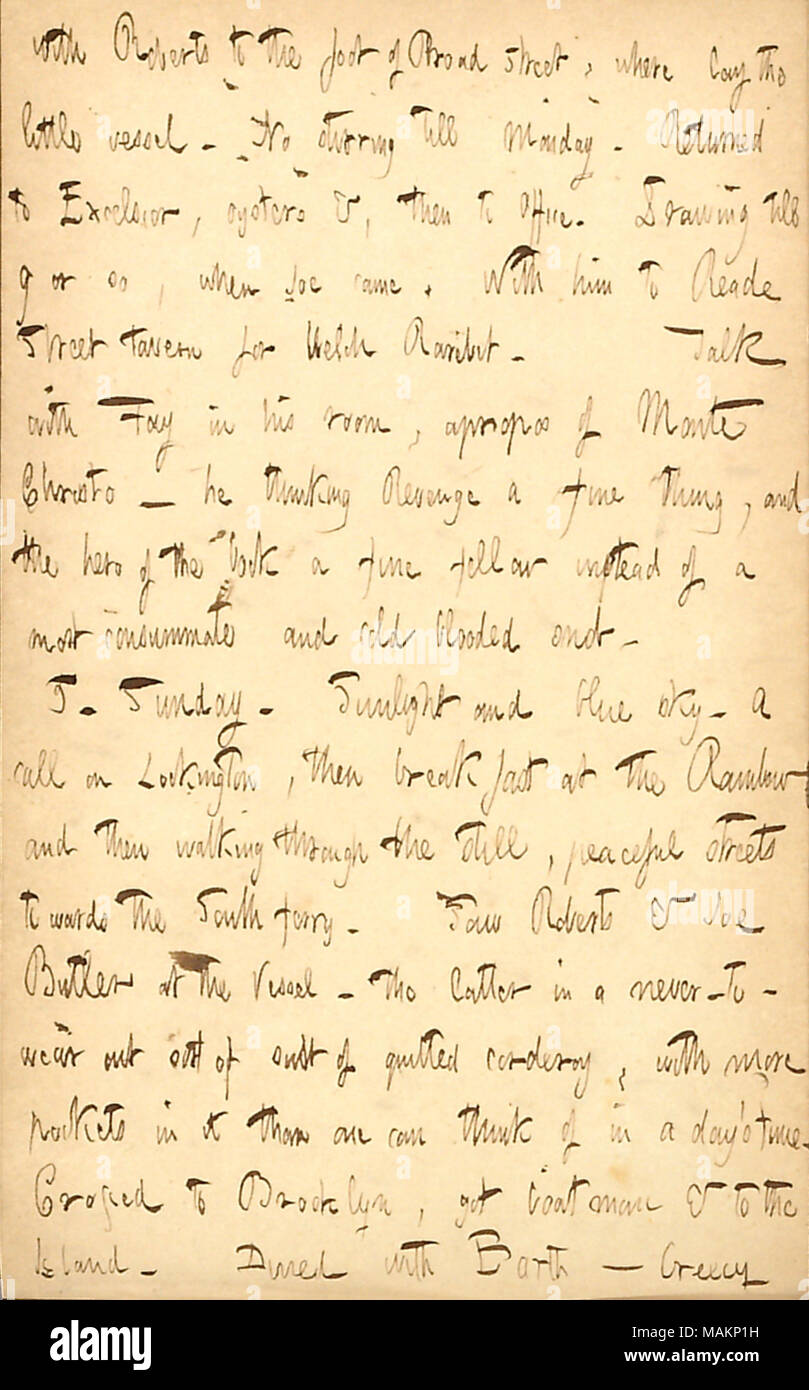 with Roberts to the foot of Broad Street, where lay the
little vessel - No stirring till Monday - Returned
to Excelsior, oysters &, then to Office. Drawing till
9 or so, when Joe came. With him to Reade
Street tavern for Welch Raribit - Talk
with Fay in his room, apropos of Monte
Christo — he thinking Revenge a fine thing, and
the hero of the book a fine fellow instead of a
most consummate and cold blooded snob -
5 - Sunday - Sunlight and blue sky - A
call on Lockington, then breakfast at the Rainbow
and then walking through the still, peaceful streets
towards the South ferry - Saw Roberts & Joe
Butler at the Vessel - the latter in a never-to-
wear out sort of suit of quilted corderoy, with more
pockets in it than one can think of in a day's time.
Crossed to Brooklyn, got boatman & to the
Island - Dined with Barth — Creecy
alamy
Image ID: MAKP1H
www.alamy.com